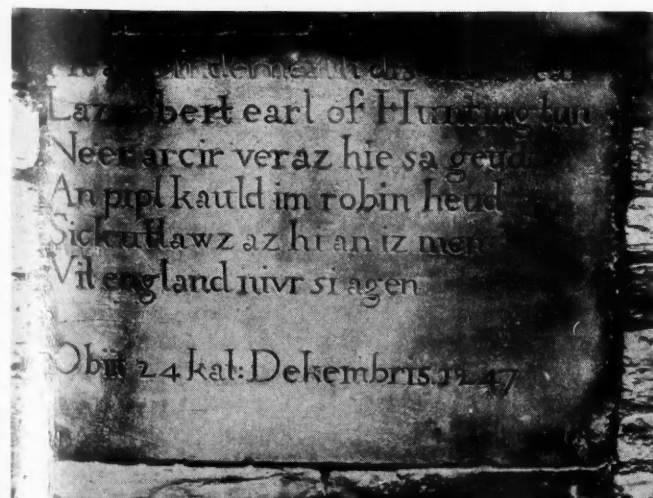 underneath dis
Laz robert earl of Huntingtun
Neer arcir veraz hie sa geud
An pipl kauld im robin heud
Sick utlawz az hi an iz men
Vil england nivr si agen
Obiit 24 kal: Dekembris 1247